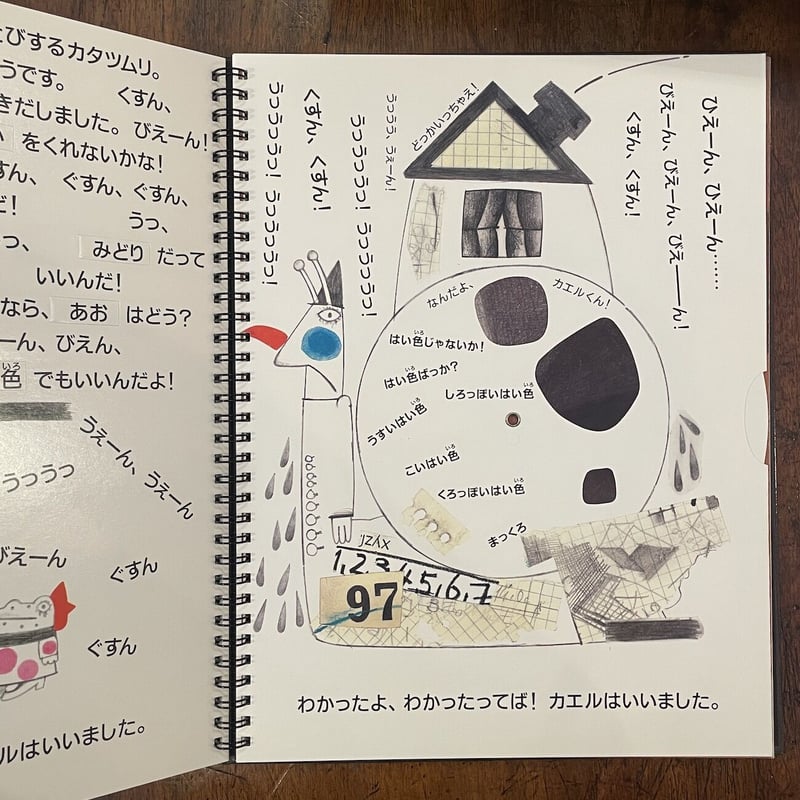 びするカタツムリ。
うです。 くすん、
きだしました。 びえーん!
をくれないかな!
すん、 ぐすん、ぐすん、
だ!
うっ、
っ、 みどり だって
いいんだ!
なら、 あお はどう?
ーん、びえん、
色 でもいいんだよ!
いろ
うえーん、うえーん
うっうっ
びえーん
ぐすん
ぐすん
ルはいいました。
ひえーん、ひえーん……
びえーん、びえーん、びえ――ん!
くすん、くすん!
どっかいっちゃえ!
うっうう、うぇーん!
うっうっうっ! うっうっうっ!
くすん、くすん!
うっうっうっ! うっうっうっ!
なんだよ、 カエルくん!
はい色じゃないか!
いろ
はい色ばっか?
いろ
しろっぽいはい色
いろ
うすいはい色
いろ
こいはい色
いろ
くろっぽいはい色
いろ
まっくろ
1,2,3,4,5,6,7
97
わかったよ、わかったってば! カエルはいいました。